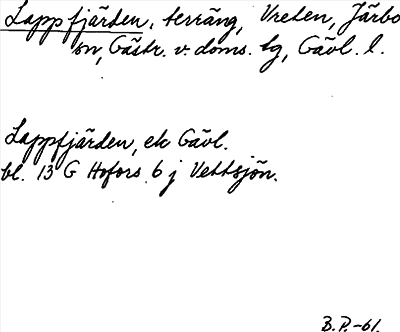 Lappfjärden, terräng, Vreten, Järbo
sn, Gästr. v. doms. tg, Gävl. l.
Lappfjärden, ek Gävl.
bl. 13 G Hofors 6 j Vettsjön.
B.P.-61.